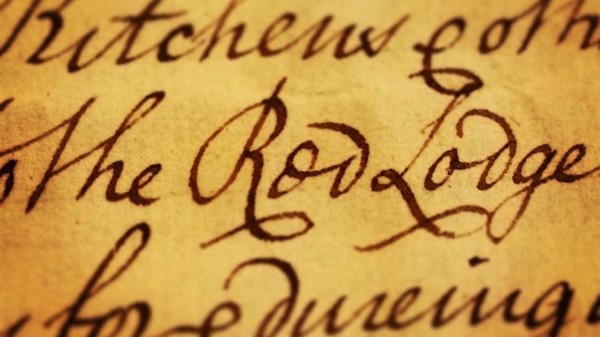 Kitchens & oth
the Red Lodge
dureing